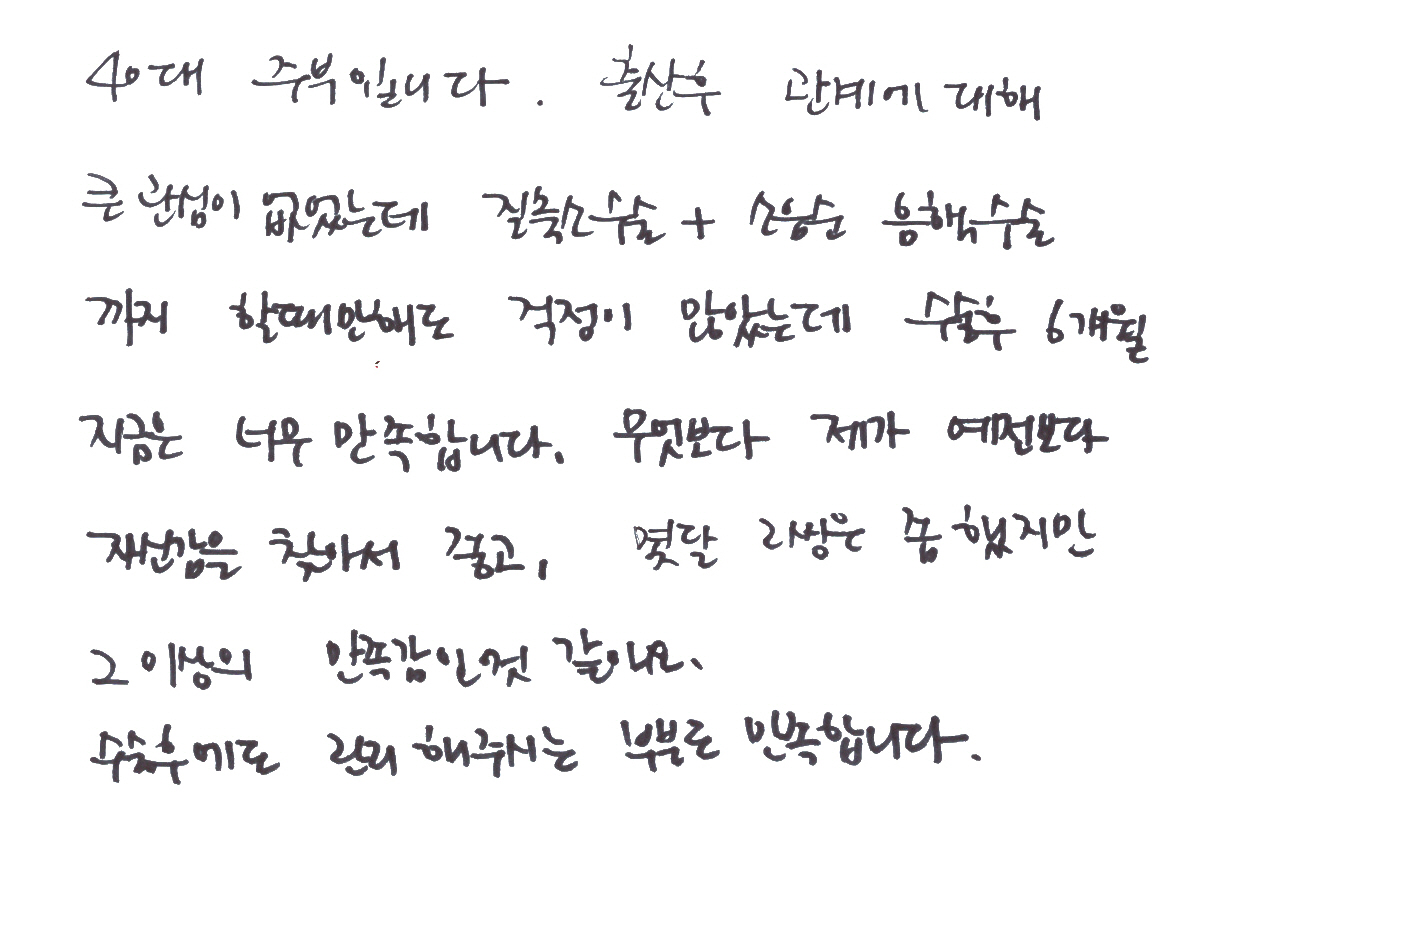 40대 주부입니다. 출산후 관계에 대해
큰 관심이 없었는데 질축소수술 + 소음순 음핵수술
까지 할때만해도 걱정이 많았는데 수술후 6개월
지금은 너무 만족합니다. 무엇보다 제가 예전보다
자신감을 찾아서 좋고, 몇달 고생은 좀 했지만
그 이상의 만족감인것 같아요.
수술후에도 관리 해주시는 부분도 만족합니다.